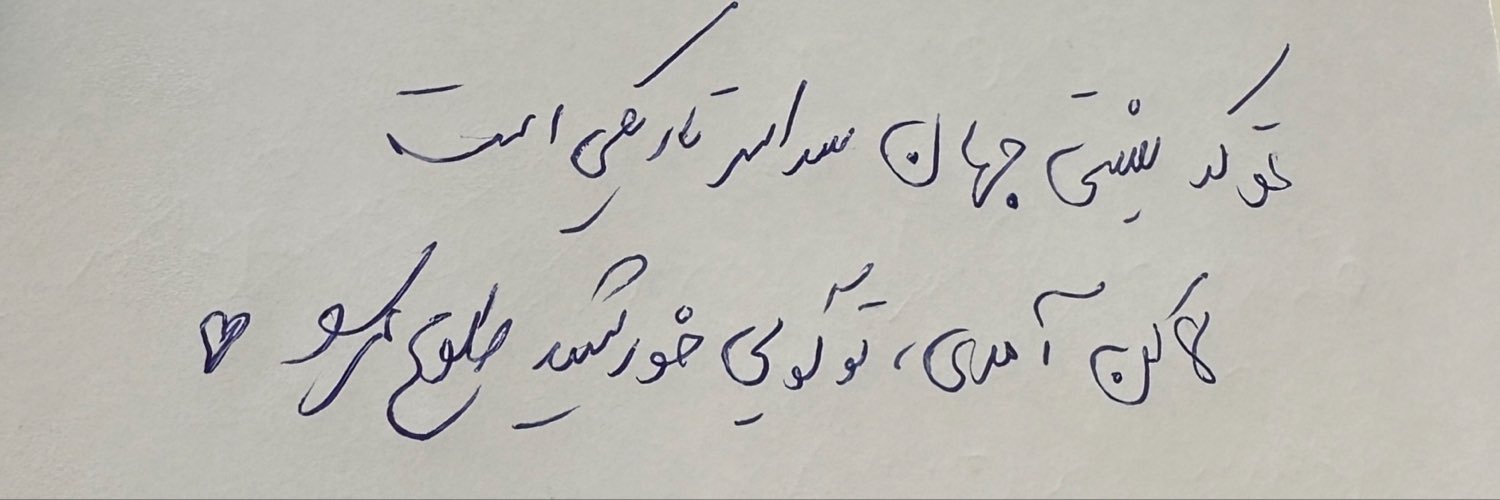 تو که نیستی جهان سراسر تاریکی است
لاکن آمدی، تو گویی خورشید طلوع کرد ♥